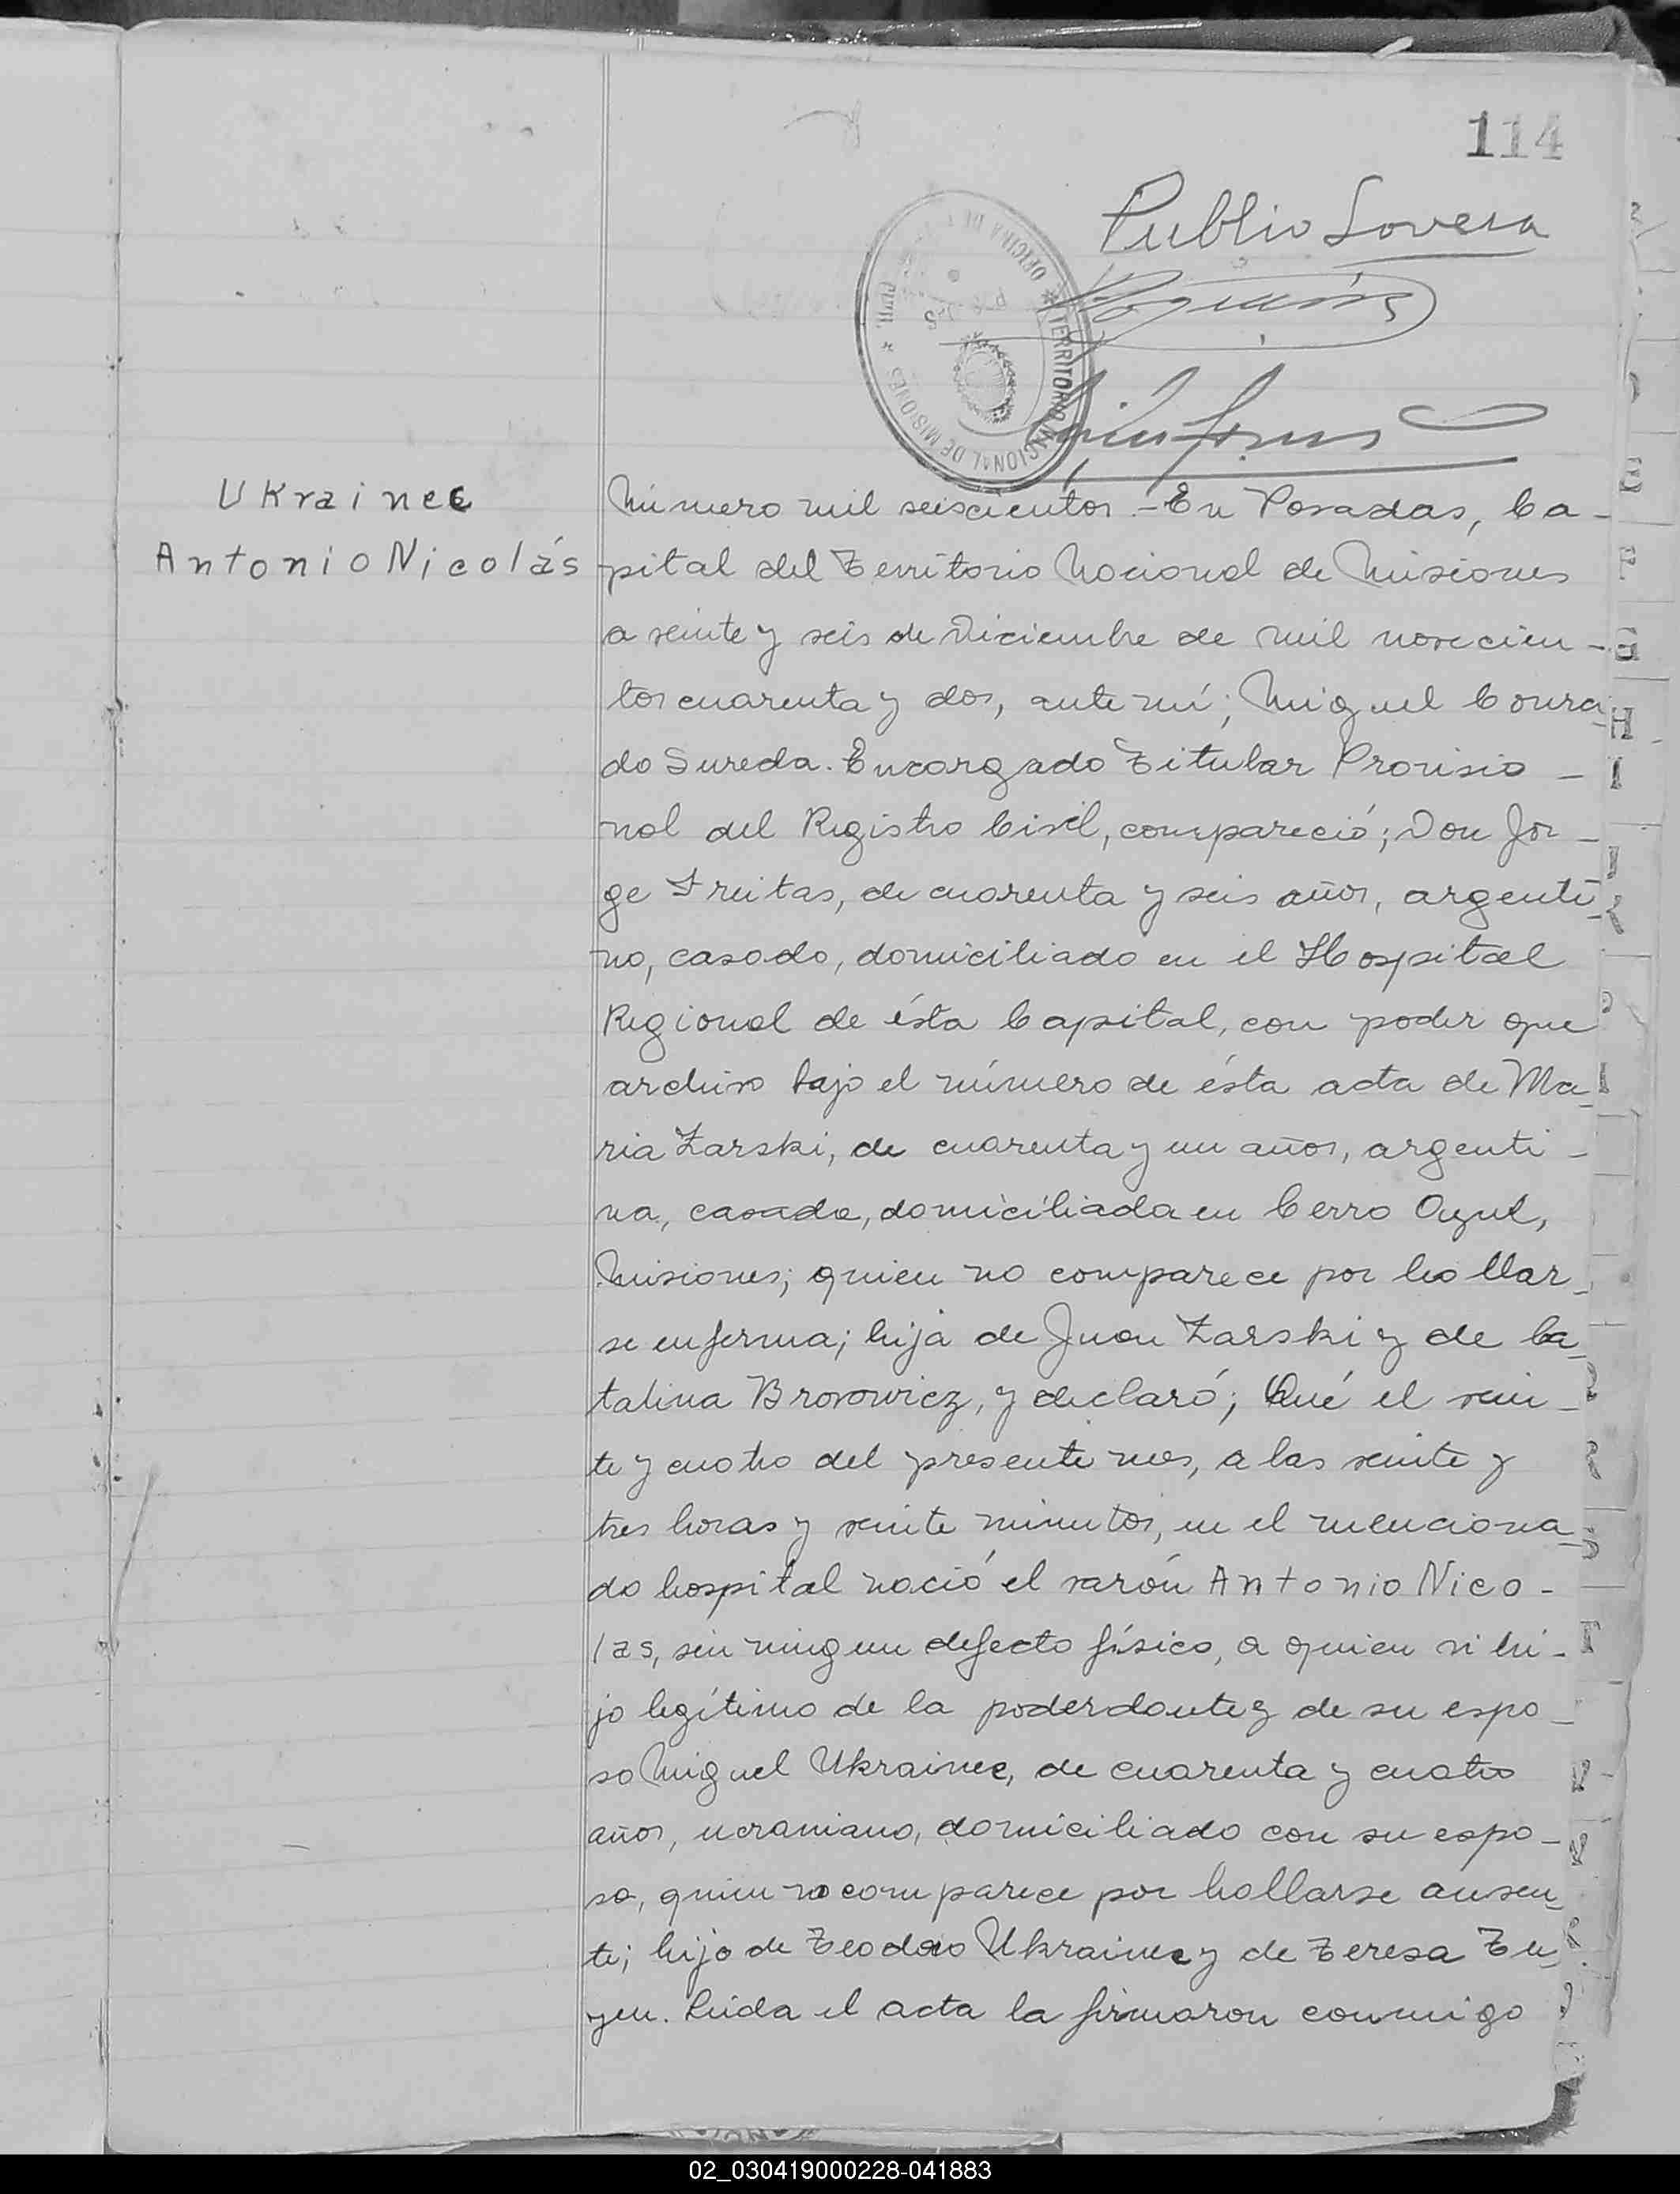 114
Publio Lovera
TERRITORIO NACIONAL DE MISIONES * OFICINA DE CIVIL *
Ukrainec
Antonio Nicolás
Número mil seiscientos.- En Posadas, Ca-
pital del Territorio Nacional de Misiones
a veinte y seis de Diciembre de mil novecien-
tos cuarenta y dos, ante mí; Miguel Conra-
do Sureda. Encargado Titular Provisio-
nal del Registro Civil, compareció; Don Jor-
ge Freitas, de cuarenta y seis años, argenti-
no, casado, domiciliado en el Hospital
Regional de ésta Capital, con poder que
archivo bajo el número de ésta acta de Ma-
ria Zarski, de cuarenta y un años, argenti-
na, casada, domiciliada en Cerro Azul,
Misiones; quien no comparece por hallar-
se enferma; hija de Juan Zarski y de Ca-
talina Brorowicz, y declaró; Qué el vein-
te y cuatro del presente mes, a las veinte y
tres horas y veinte minutos, en el menciona-
do hospital nació el varón Antonio Nico-
las, sin ningun defecto físico, a quien vi hi-
jo legítimo de la poderdante y de su espo-
so Miguel Ukrainec, de cuarenta y cuatro
años, ucraniano, domiciliado con su espo-
sa, quien no comparece por hallarse ausen-
te; hijo de Teodoro Ukrainec y de Teresa Tu-
yen. Leida el acta la firmaron conmigo
02_030419000228-041883